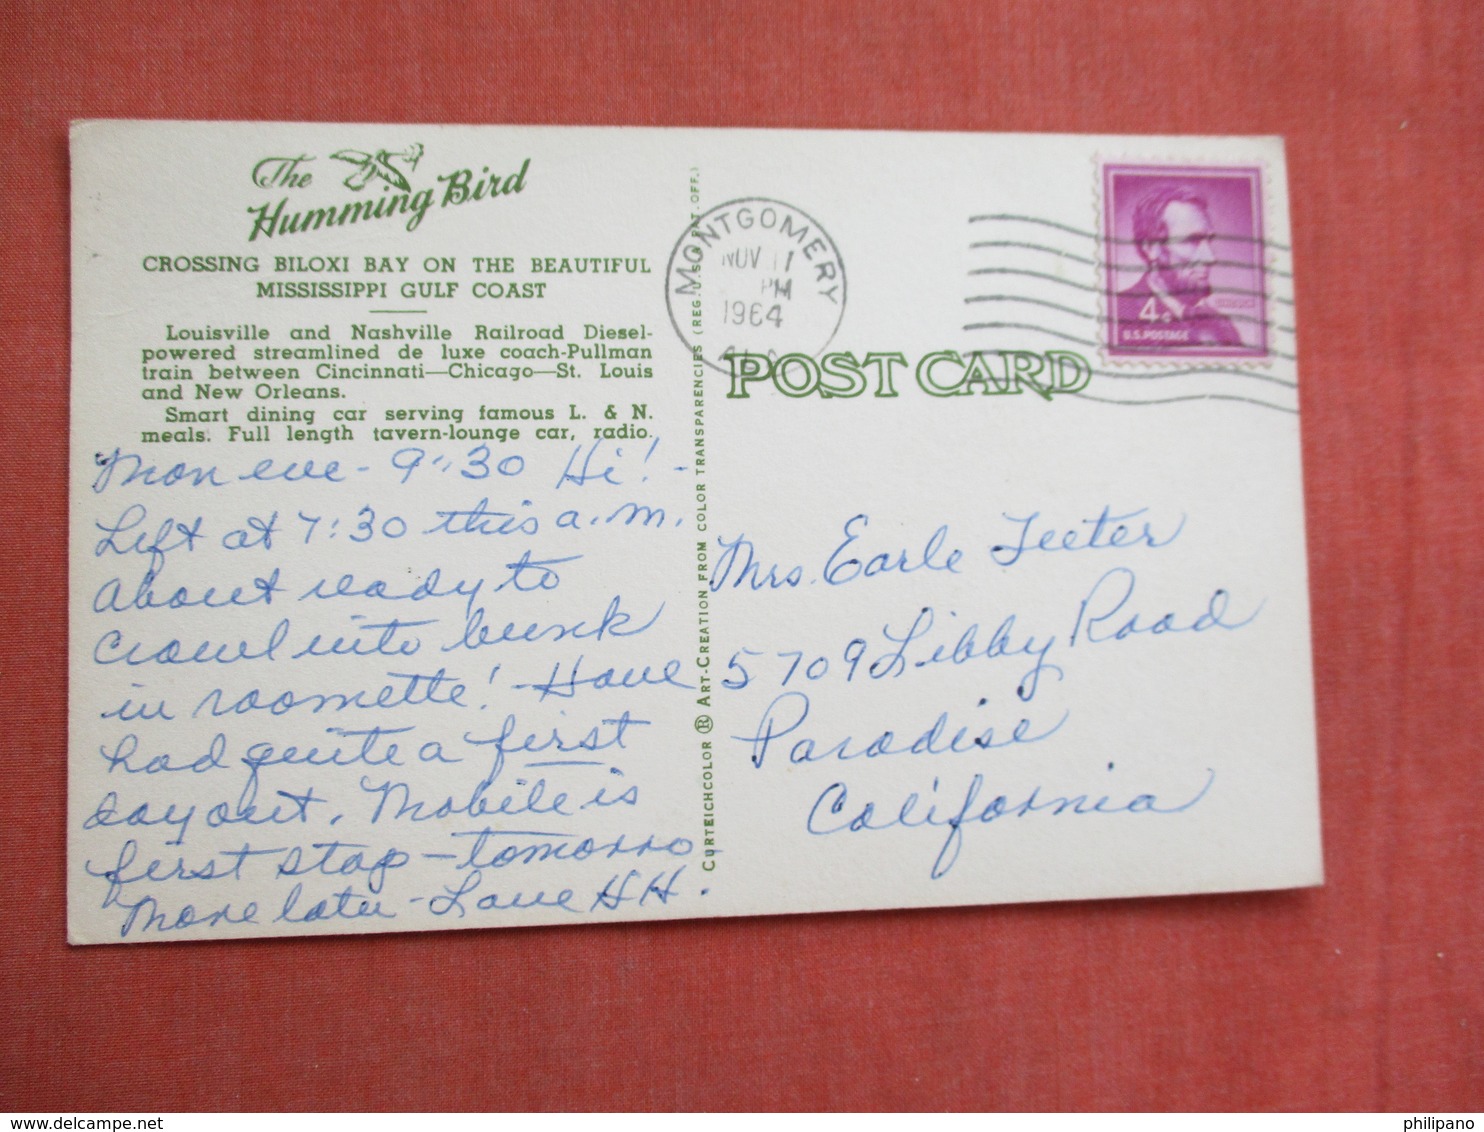 The
Humming Bird
CROSSING BILOXI BAY ON THE BEAUTIFUL
MISSISSIPPI GULF COAST
Louisville and Nashville Railroad Diesel-
powered streamlined de luxe coach-Pullman
train between Cincinnati—Chicago—St. Louis
and New Orleans.
Smart dining car serving famous L. & N.
meals. Full length tavern-lounge car, radio.
Mon eve - 9:30 Hi! -
Left at 7:30 this a.m.
About ready to
crawl into bunk
in roomette! - Have
had quite a first
day out. Mobile is
first stop - tomorro
More later - Love H H.
CURTEICHCOLOR ® ART-CREATION FROM COLOR TRANSPARENCIES (REG. U.S.A. PAT. OFF.)
MONTGOMERY
NOV 11
PM
1964
4¢
U.S. POSTAGE
POST CARD
Mrs. Earle Teeter
5709 Libby Road
Paradise
California
philipano